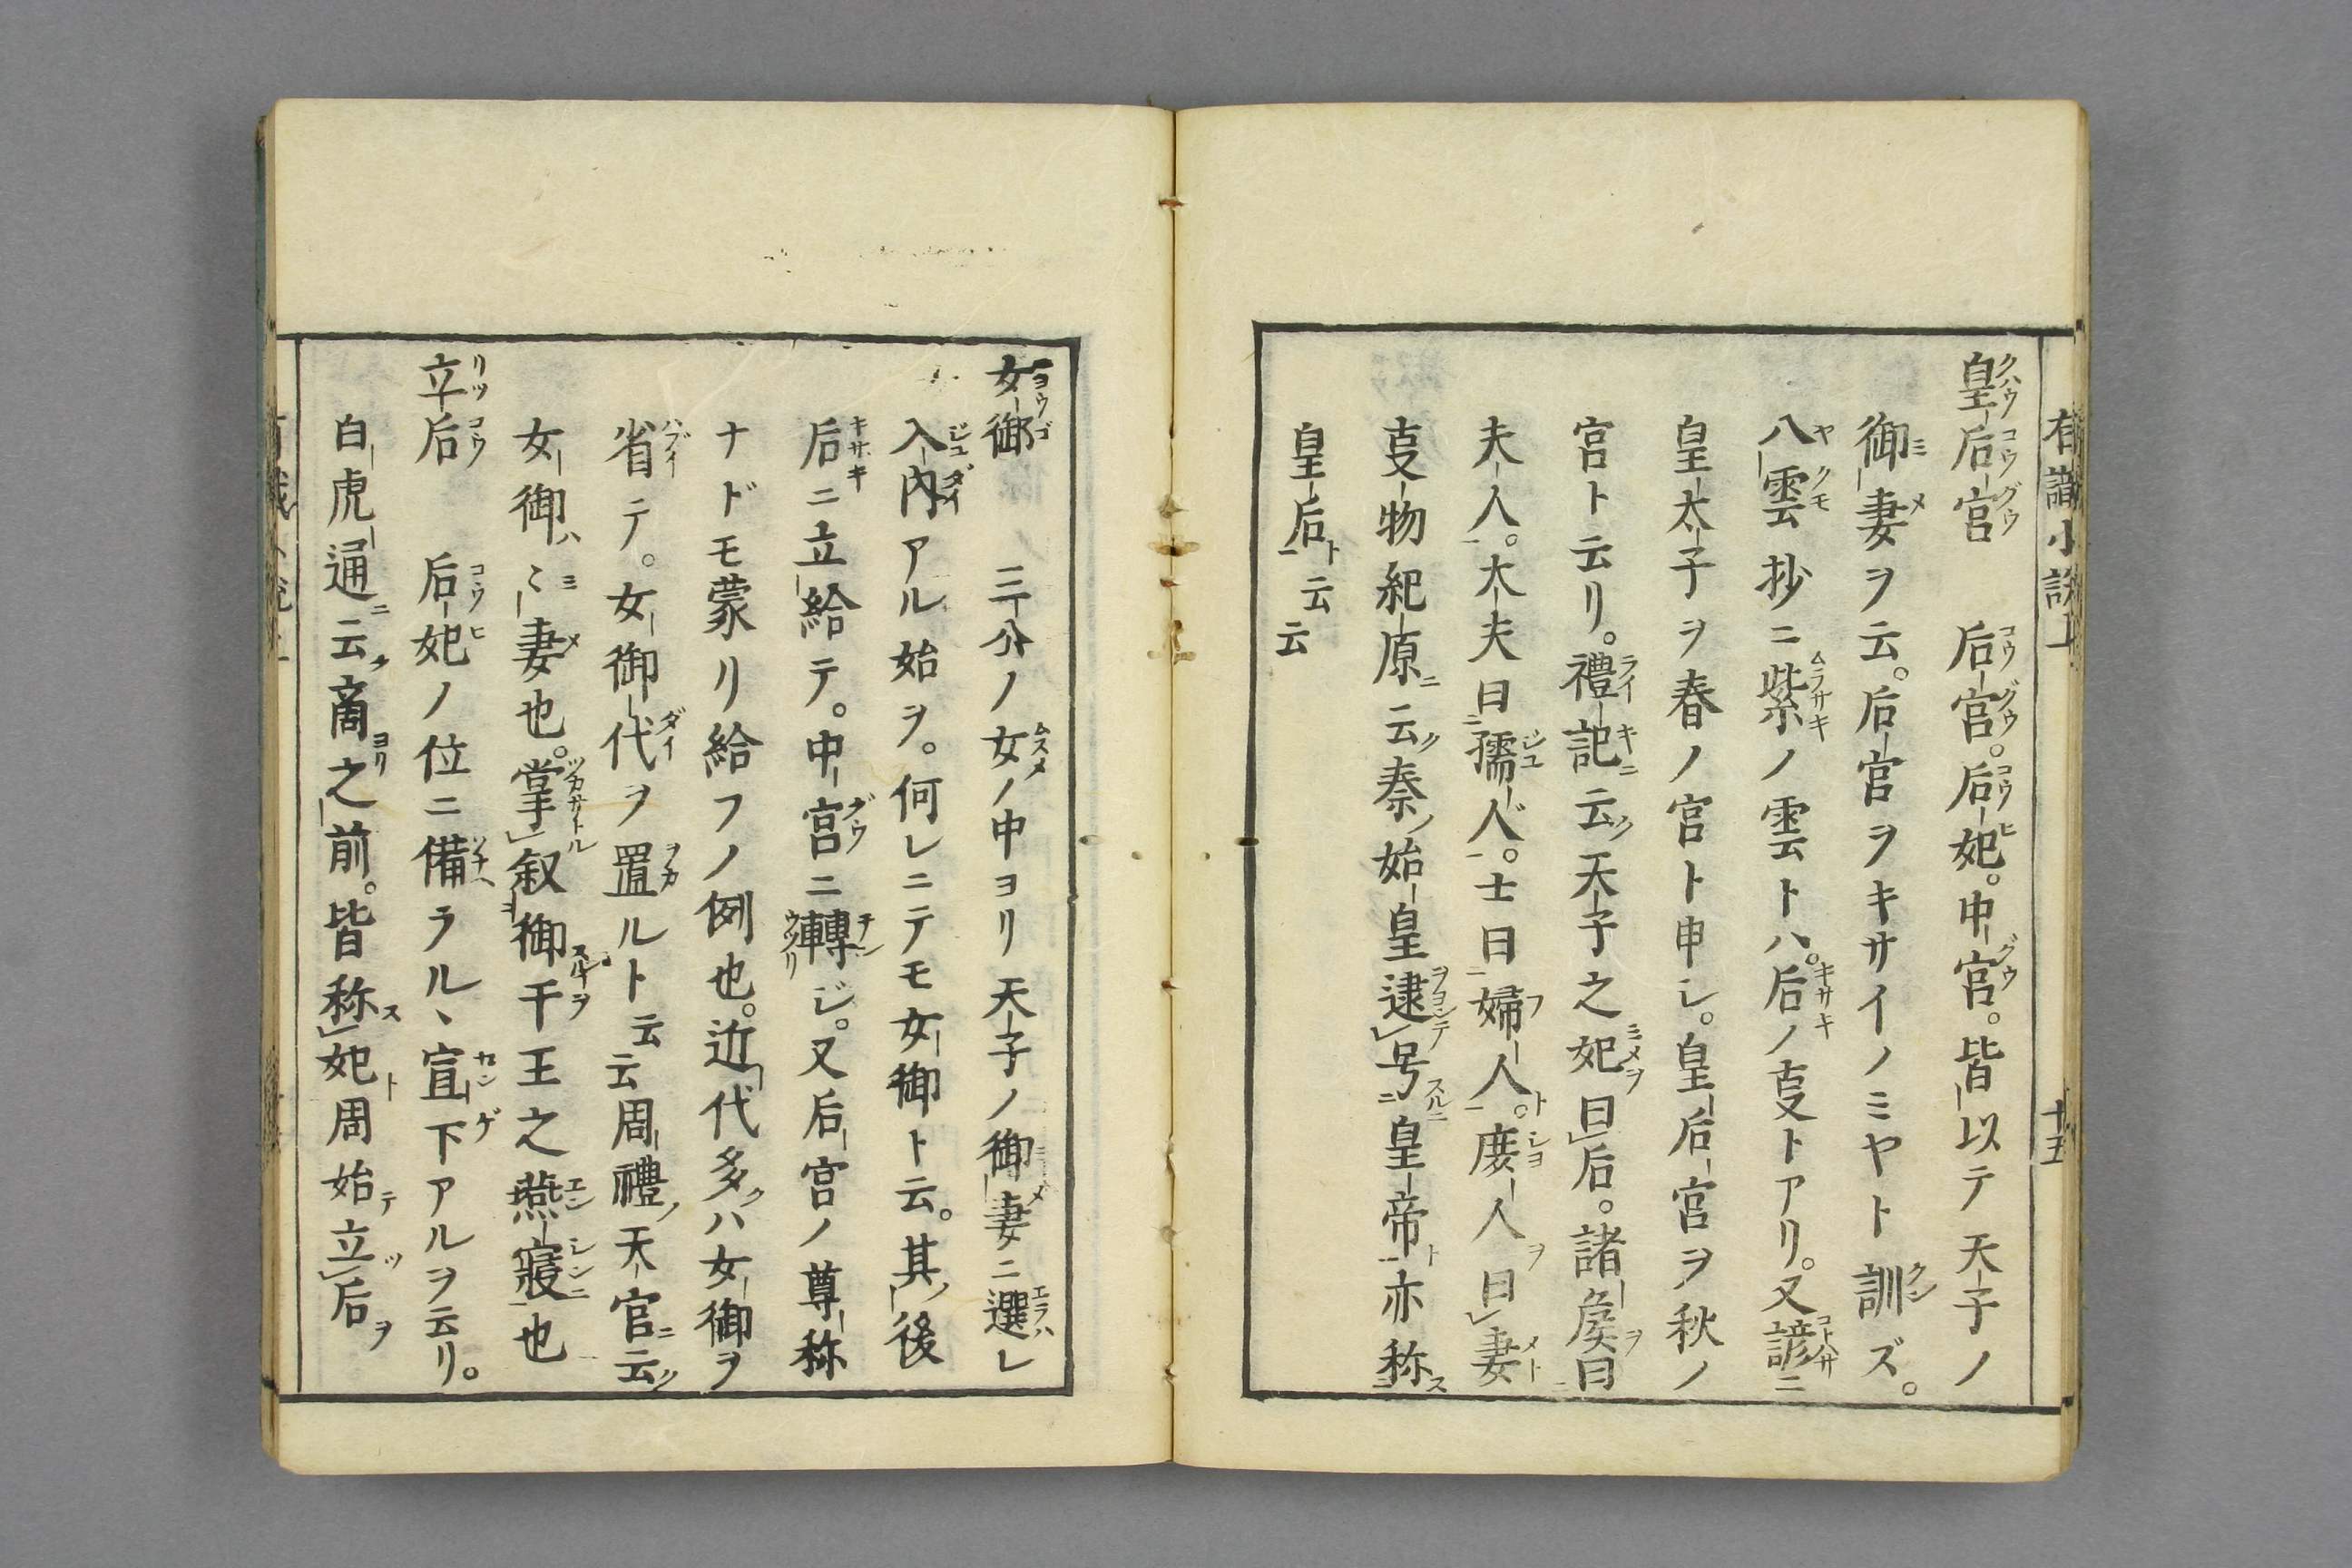 有識小説上 十五
皇后宮 后宮。后妃。中宮。皆以テ天子ノ
御妻ヲ云。后宮ヲキサイノミヤト訓ズ。
八雲抄ニ紫ノ雲トハ。后ノ叓トアリ。又諺ニ
皇太子ヲ春ノ宮ト申シ。皇后宮ヲ秋ノ
宮ト云リ。禮記ニ云ク天子之妃ヲ曰后。諸侯ヲ曰
夫人。太夫曰孺人。士曰婦人ト。庶人ヲ曰妻ト
叓物紀原ニ云ク秦ノ始皇逮号スルニ皇帝ト亦称ス
皇后ト云云
女御 三公ノ女ノ中ヨリ天子ノ御妻ニ選ハレ
入内アル始ヲ。何レニテモ女御ト云。其後
后ニ立給テ。中宮ニ轉ジ。又后宮ノ尊称
ナドモ蒙リ給フノ例也。近代多クハ女御ヲ
省テ。女御代ヲ置ルト云云周禮ノ天官ニ云ク
女御ハ〻妻也。掌叙御干王之燕寢ニ也
立后 后妃ノ位ニ備ラル、宣下アルヲ云リ。
白虎通ニ云ク商之前。皆称ス妃ト周始テ立ツ后ヲ